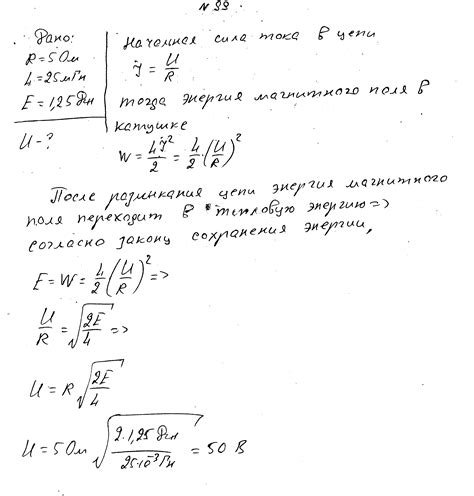 N 99.
Дано:
R = 5 Ом
L = 25 мГн
E = 1,25 Дж
U - ?
Начальная сила тока в цепи
I = U/R
тогда энергия магнитного поля в
катушке
W = LI²/2 = L/2 · (U/R)²
После размыкания цепи энергия магнитного
поля переходит в тепловую энергию =>
согласно закону сохранения энергии,
E = W = L/2 (U/R)² =>
U/R = √(2E/L) =>
U = R √(2E/L)
U = 5 Ом √(2·1,25 Дж / 25·10⁻³ Гн) = 50 В